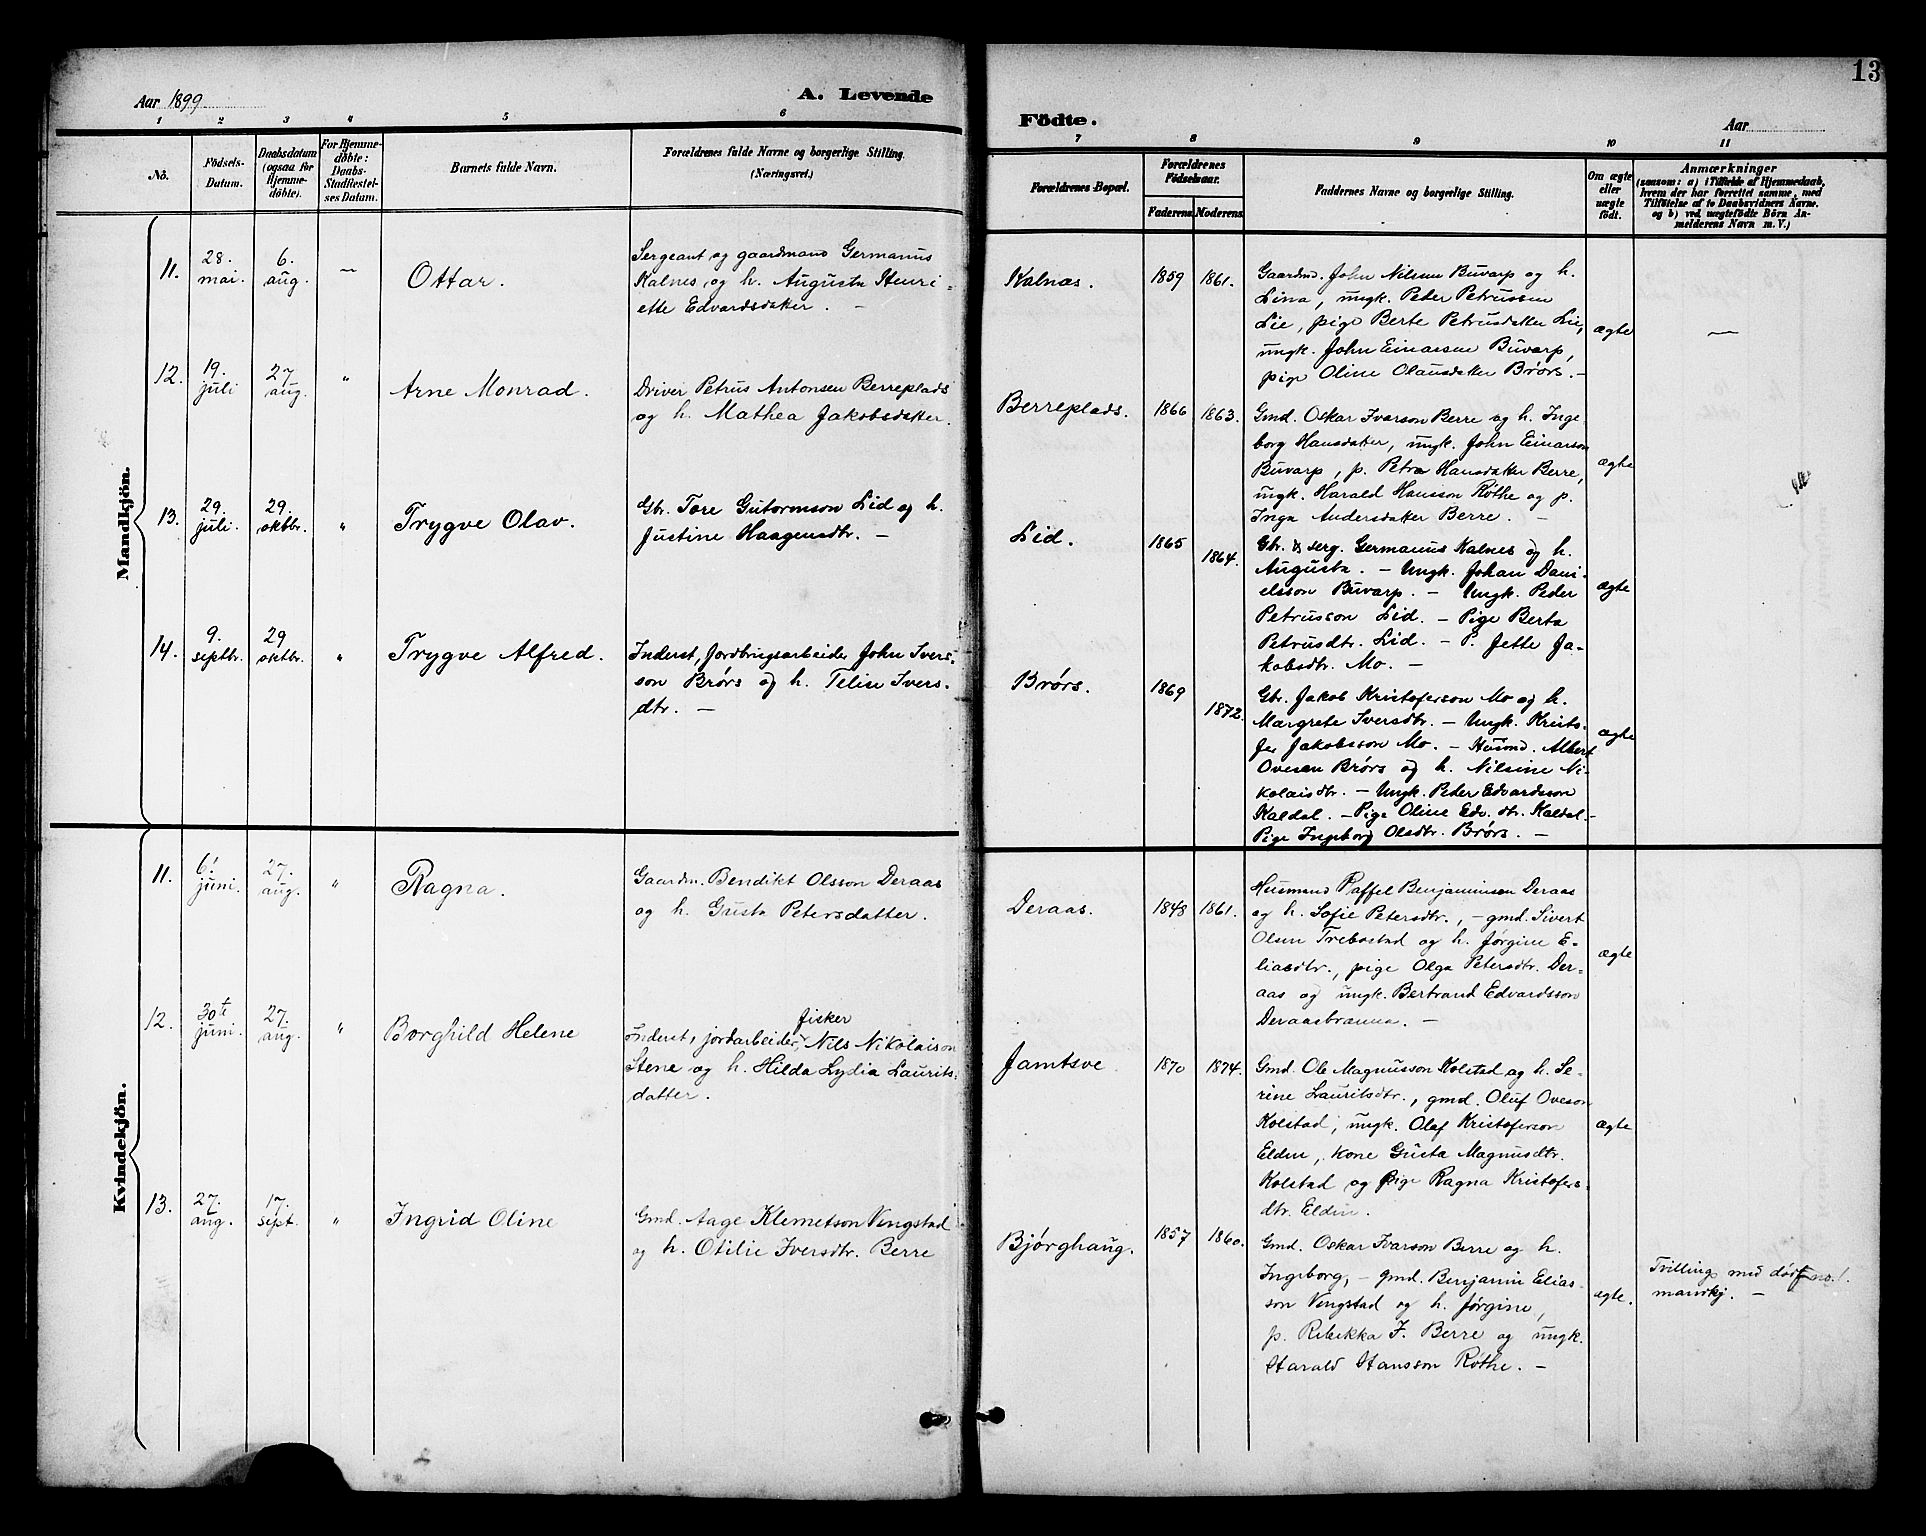 Aar 1899
A. Levende
1 2 3 4 5 6
Nô.
Födsels-
Datum.
Daabsdatum
(ogsaa for
Hjemme-
döbte).
For Hjemme-
döbte:
Daabs-
Stadfæstel-
ses Datum.
Barnets fulde Navn.
Forældrenes fulde Navne og borgerlige Stilling.
(Næringsvei.)
Mandkjön.
11.
28.
mai.
6.
aug.
—
Ottar.
Sergeant og gaardmand Germanus
Kalnes, og h. Augusta Henri-
ette Edvardsdatter. —
12.
19.
juli
27
aug.
"
Arne Monrad.
Driver Petrus Antonsen Berreplads
og h. Mathea Jakobsdatter.
13.
29.
juli.
29.
oktbr.
"
Trygve Olav.
Gbr. Tore Gutormson Lid og h.
Justine Haagensdtr. —
14.
9.
septbr.
29
oktbr.
"
Trygve Alfred.
Inderst, Jordbrugsarbeider John Ivers-
son Brørs og h. Teline Ivers-
dtr. —
Kvindekjön.
11.
6!
juni.
27.
aug.
"
Ragna.
Gaardm. Bendikt Olsson Deraas
og h. Gusta Petersdatter.
12.
30t
juni.
27.
aug.
"
Borghild Helene
fisker
Inderst, jordarbeider, Nils Nikolaison
Stene og h. Hilda Lydia Laurits-
datter.
13.
27.
aug.
17.
sept.
"
Ingrid Oline
Gmd. Aage Klemetson Vengstad
og h. Otilie Iversdtr. Berre
13
Födte.
Aar
7 8 9 10 11
Forældrenes Bopæl.
Forældrenes
Födselsaar.
Faderens. Moderens.
Faddernes Navne og borgerlige Stilling.
Om ægte
eller
uægte
födt.
Anmærkninger
(saasom: a) i Tilfælde af Hjemmedaab,
hvem der har forrettet samme, med
Tilföielse af to Daabsvidners Navne.
og b) ved uægtefödte Börn An-
melderens Navn m. V.)
Kalnæs.
1859 1861.
Gaardmd. John Nilssen Buvarp og h.
Lina, ungk. Peder Petrussen
Lie, pige Berte Petrusdatter Lie,
ungk. John Einarsen Buvarp,
pige Oline Olausdatter Brørs. —
ægte
—
Berreplads.
1866 1863.
Gmd. Oskar Ivarson Berre og h. Inge-
borg Hansdatter, ungk. John Einarson
Buvarp, p. Petra Hansdatter Berre,
ungk. Harald Hansson Røthe og p.
Inga Andersdatter Berre. —
ægte
Lid.
1865 1864.
Gbr. & serg. Germanus Kalnes og h.
Augusta. — Ungk. Johan Dani-
elsson Buvarp. — Ungk. Peder
Petrusson Lid. — Pige Berta
Petrusdtr. Lid. — P. Jette Ja-
kobsdtr. Mo. —
ægte
Brørs.
1869 1872.
Gbr. Jakob Kristoferson Mo og h.
Margrete Iversdtr. — Ungk. Kristo-
fer Jakobsson Mo. — Husmd. Albert
Ovesen Brørs og h. Nilsine Ni-
kolaisdtr. — Ungk. Peder Edvardsson
Kaldal. — Pige Oline Edv. dtr. Kaldal. —
Pige Ingeborg Olsdtr. Brørs. —
ægte
Deraas.
1848 1861.
Husmand Raffel Benjaminsen Deraas
og h. Sofie Petersdtr., — gmd. Sivert
Olsen Trebostad og h. Jørgine E-
liasdtr., pige Olga Petersdtr. Der-
aas og ungk. Bertrand Edvardsson
Deraasbrauna. —
ægte
Jamtsve
1870 1874.
Gmd. Ole Magnusson Kolstad og h. Se-
rine Lauritsdtr., gmd. Oluf Oveson
Kolstad, ungk. Olaf Kristoferson
Elden, kone Gusta Magnusdtr.
Kolstad og pige Ragna Kristofers-
dtr. Elden.
ægte
Bjørghaug.
1857 1860.
Gmd. Oskar Ivarson Berre og h.
Ingeborg, — gmd. Benjamin Elias-
son Vengstad og h. Jørgine,
p. Rebekka I. Berre og ungk.
Harald Hansson Røthe. —
ægte.
Tvilling med dødf. no. 1.
mandkj. —